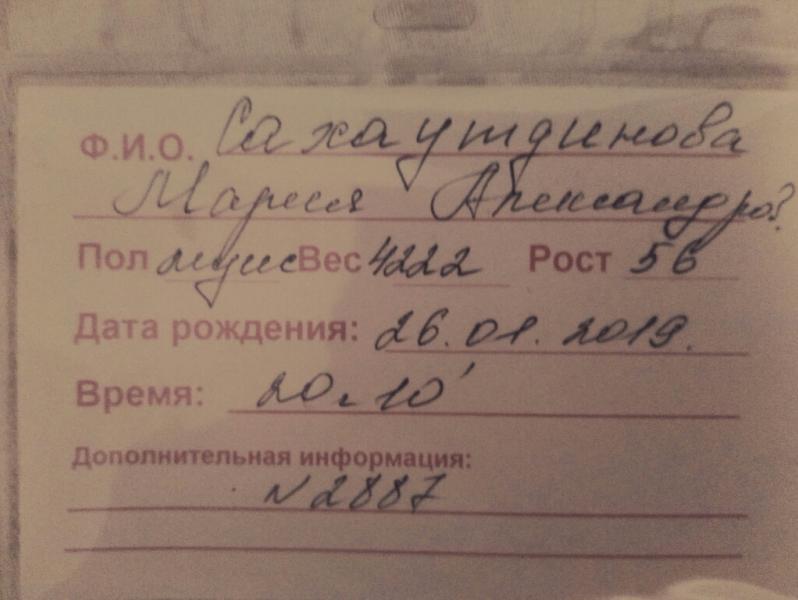 Ф.И.О. Сахаутдинова
Мария Александров
Пол муж Вес 4222 Рост 56
Дата рождения: 26.01.2019.
Время: 20ч 10'
Дополнительная информация:
N 2887